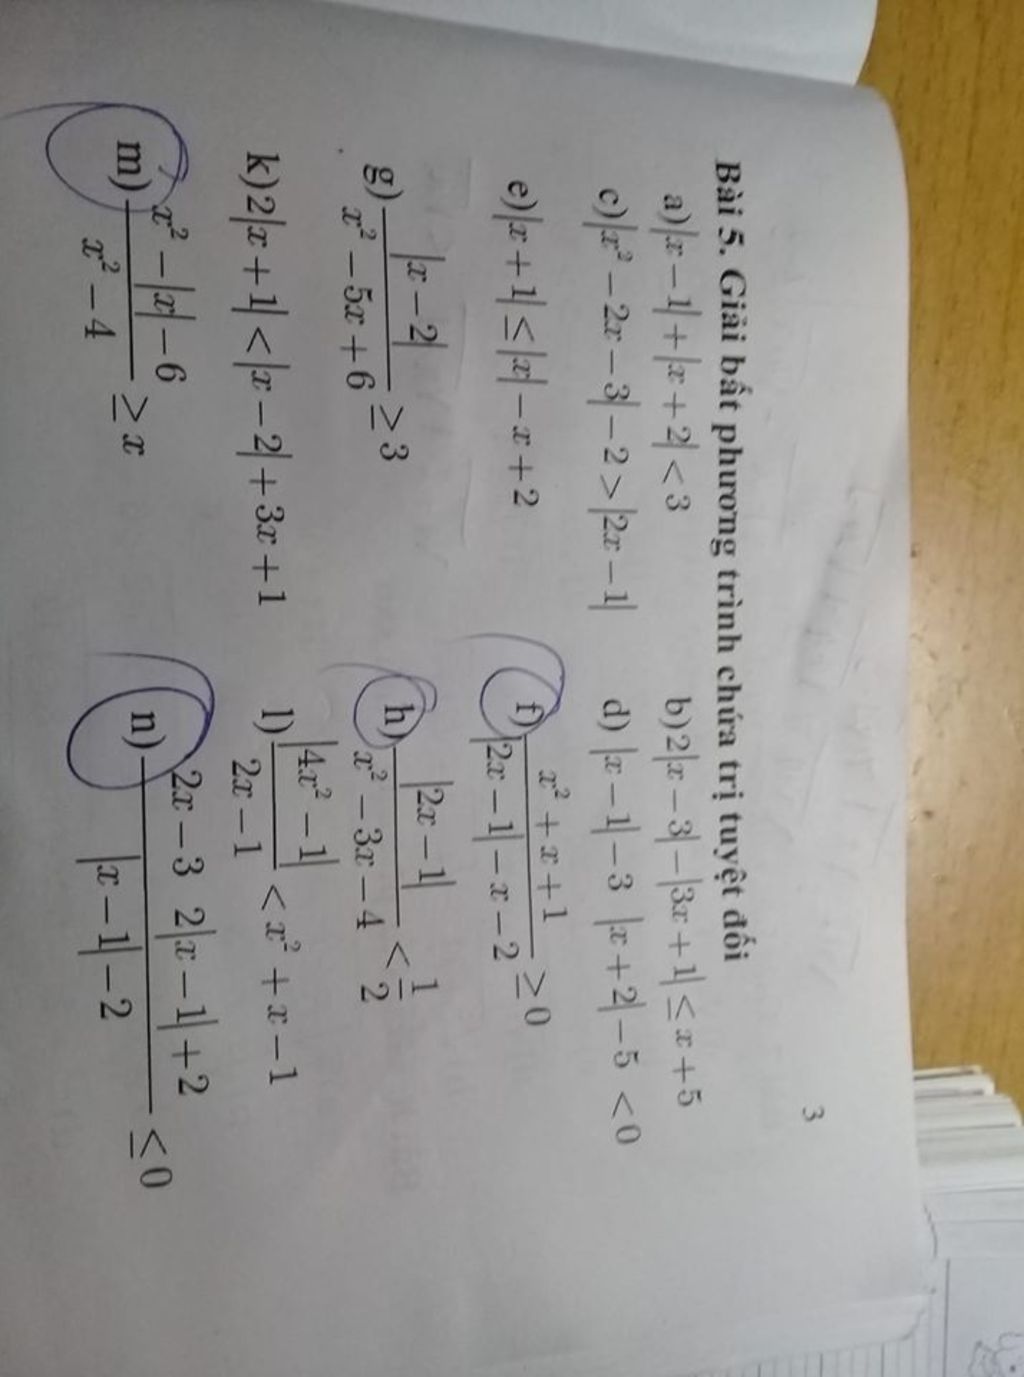 3
Bài 5. Giải bất phương trình chứa trị tuyệt đối
a) |x − 1| + |x + 2| < 3 b) 2|x − 3| − |3x + 1| ≤ x + 5
c) |x² − 2x − 3| − 2 > |2x − 1| d) |x − 1| − 3 |x + 2| − 5 < 0
e) |x + 1| ≤ |x| − x + 2 f) (x² + x + 1)/(|2x − 1| − x − 2) ≥ 0
g) |x − 2|/(x² − 5x + 6) ≥ 3 h) |2x − 1|/(x² − 3x − 4) < 1/2
k) 2|x + 1| < |x − 2| + 3x + 1 l) |4x² − 1|/(2x − 1) < x² + x − 1
m) (x² − |x| − 6)/(x² − 4) ≥ x n) (2x − 3 2|x − 1| + 2)/(|x − 1| − 2) ≤ 0